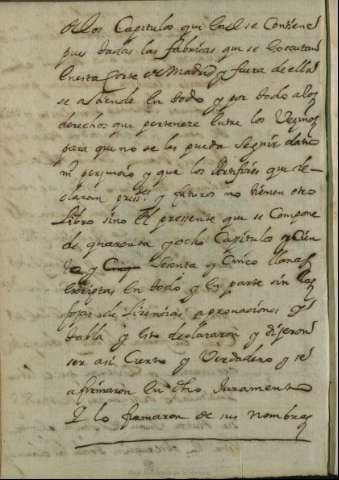 de los Capitulos que en el se Contiene
pues todas las fabricas que se executan
en esta Corte de Madrid y fuera de ella
se atiende en todo y por todo a los
derechos que pertenece entre los Vezinos
para que no se les pueda seguir daño
ni perjuicio y que los Artifices que de
claran press.tes y futuros no tienen otro
Libro sino el pressente que se Compone
de quarenta y ocho Capitulos y Cien
to y Cinq sesenta y Cinco llanas
escriptas en todo y en parte sin las
fojas de lizencias aprovaciones y
tabla y esto declararon y dijeron
ser asi Cierto y Verdadero y se
afirmaron en dho Juramento
y lo firmaron de sus Nombres